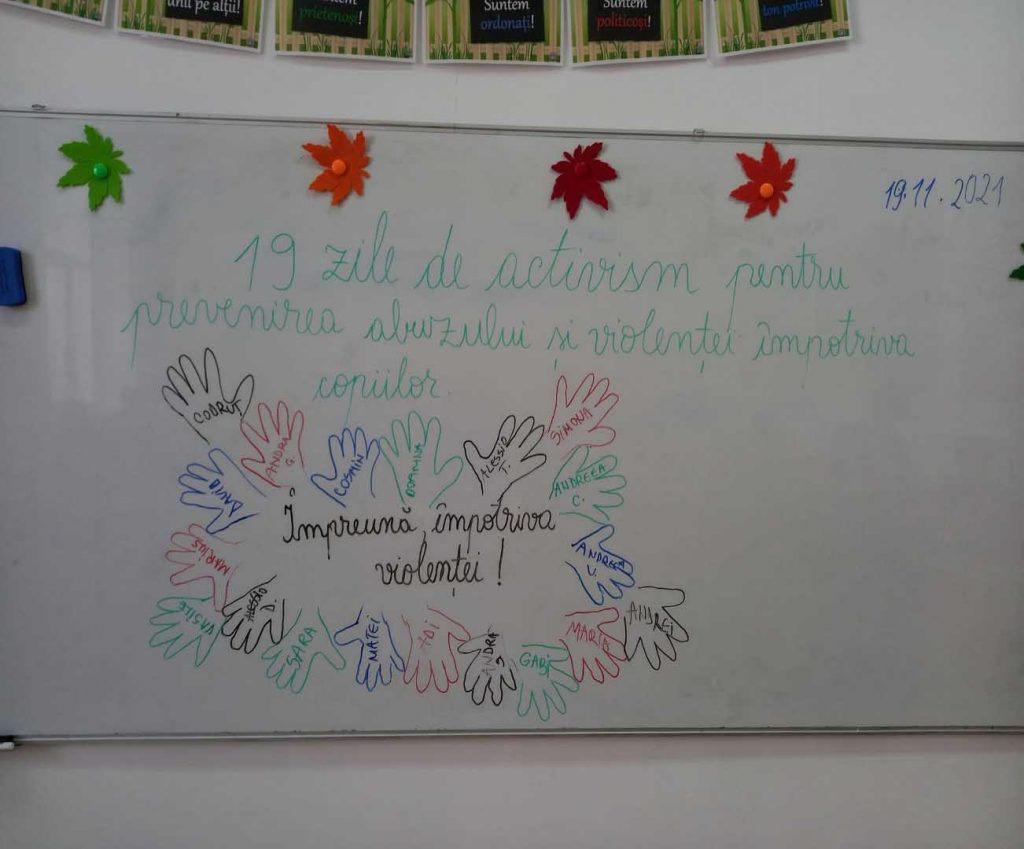 unii pe alții!
prietenoși!
Suntem
ordonați!
Suntem
politicoși!
19.11.2021
19 zile de activism pentru
prevenirea abuzului și violenței împotriva
copiilor
CODRUȚ
ANDRA
G.
COSMIN
DOAMNA
ALESSIO
T.
SIMONA
DAVID
ANDREEA
C.
Împreună, împotriva
violenței!
MARIUS
ANDREEA
V.
VASILE
ALESSIO
D.
SARA
MATEI
ADI
ANDRA
S
GABI
MARIA
ANDREI